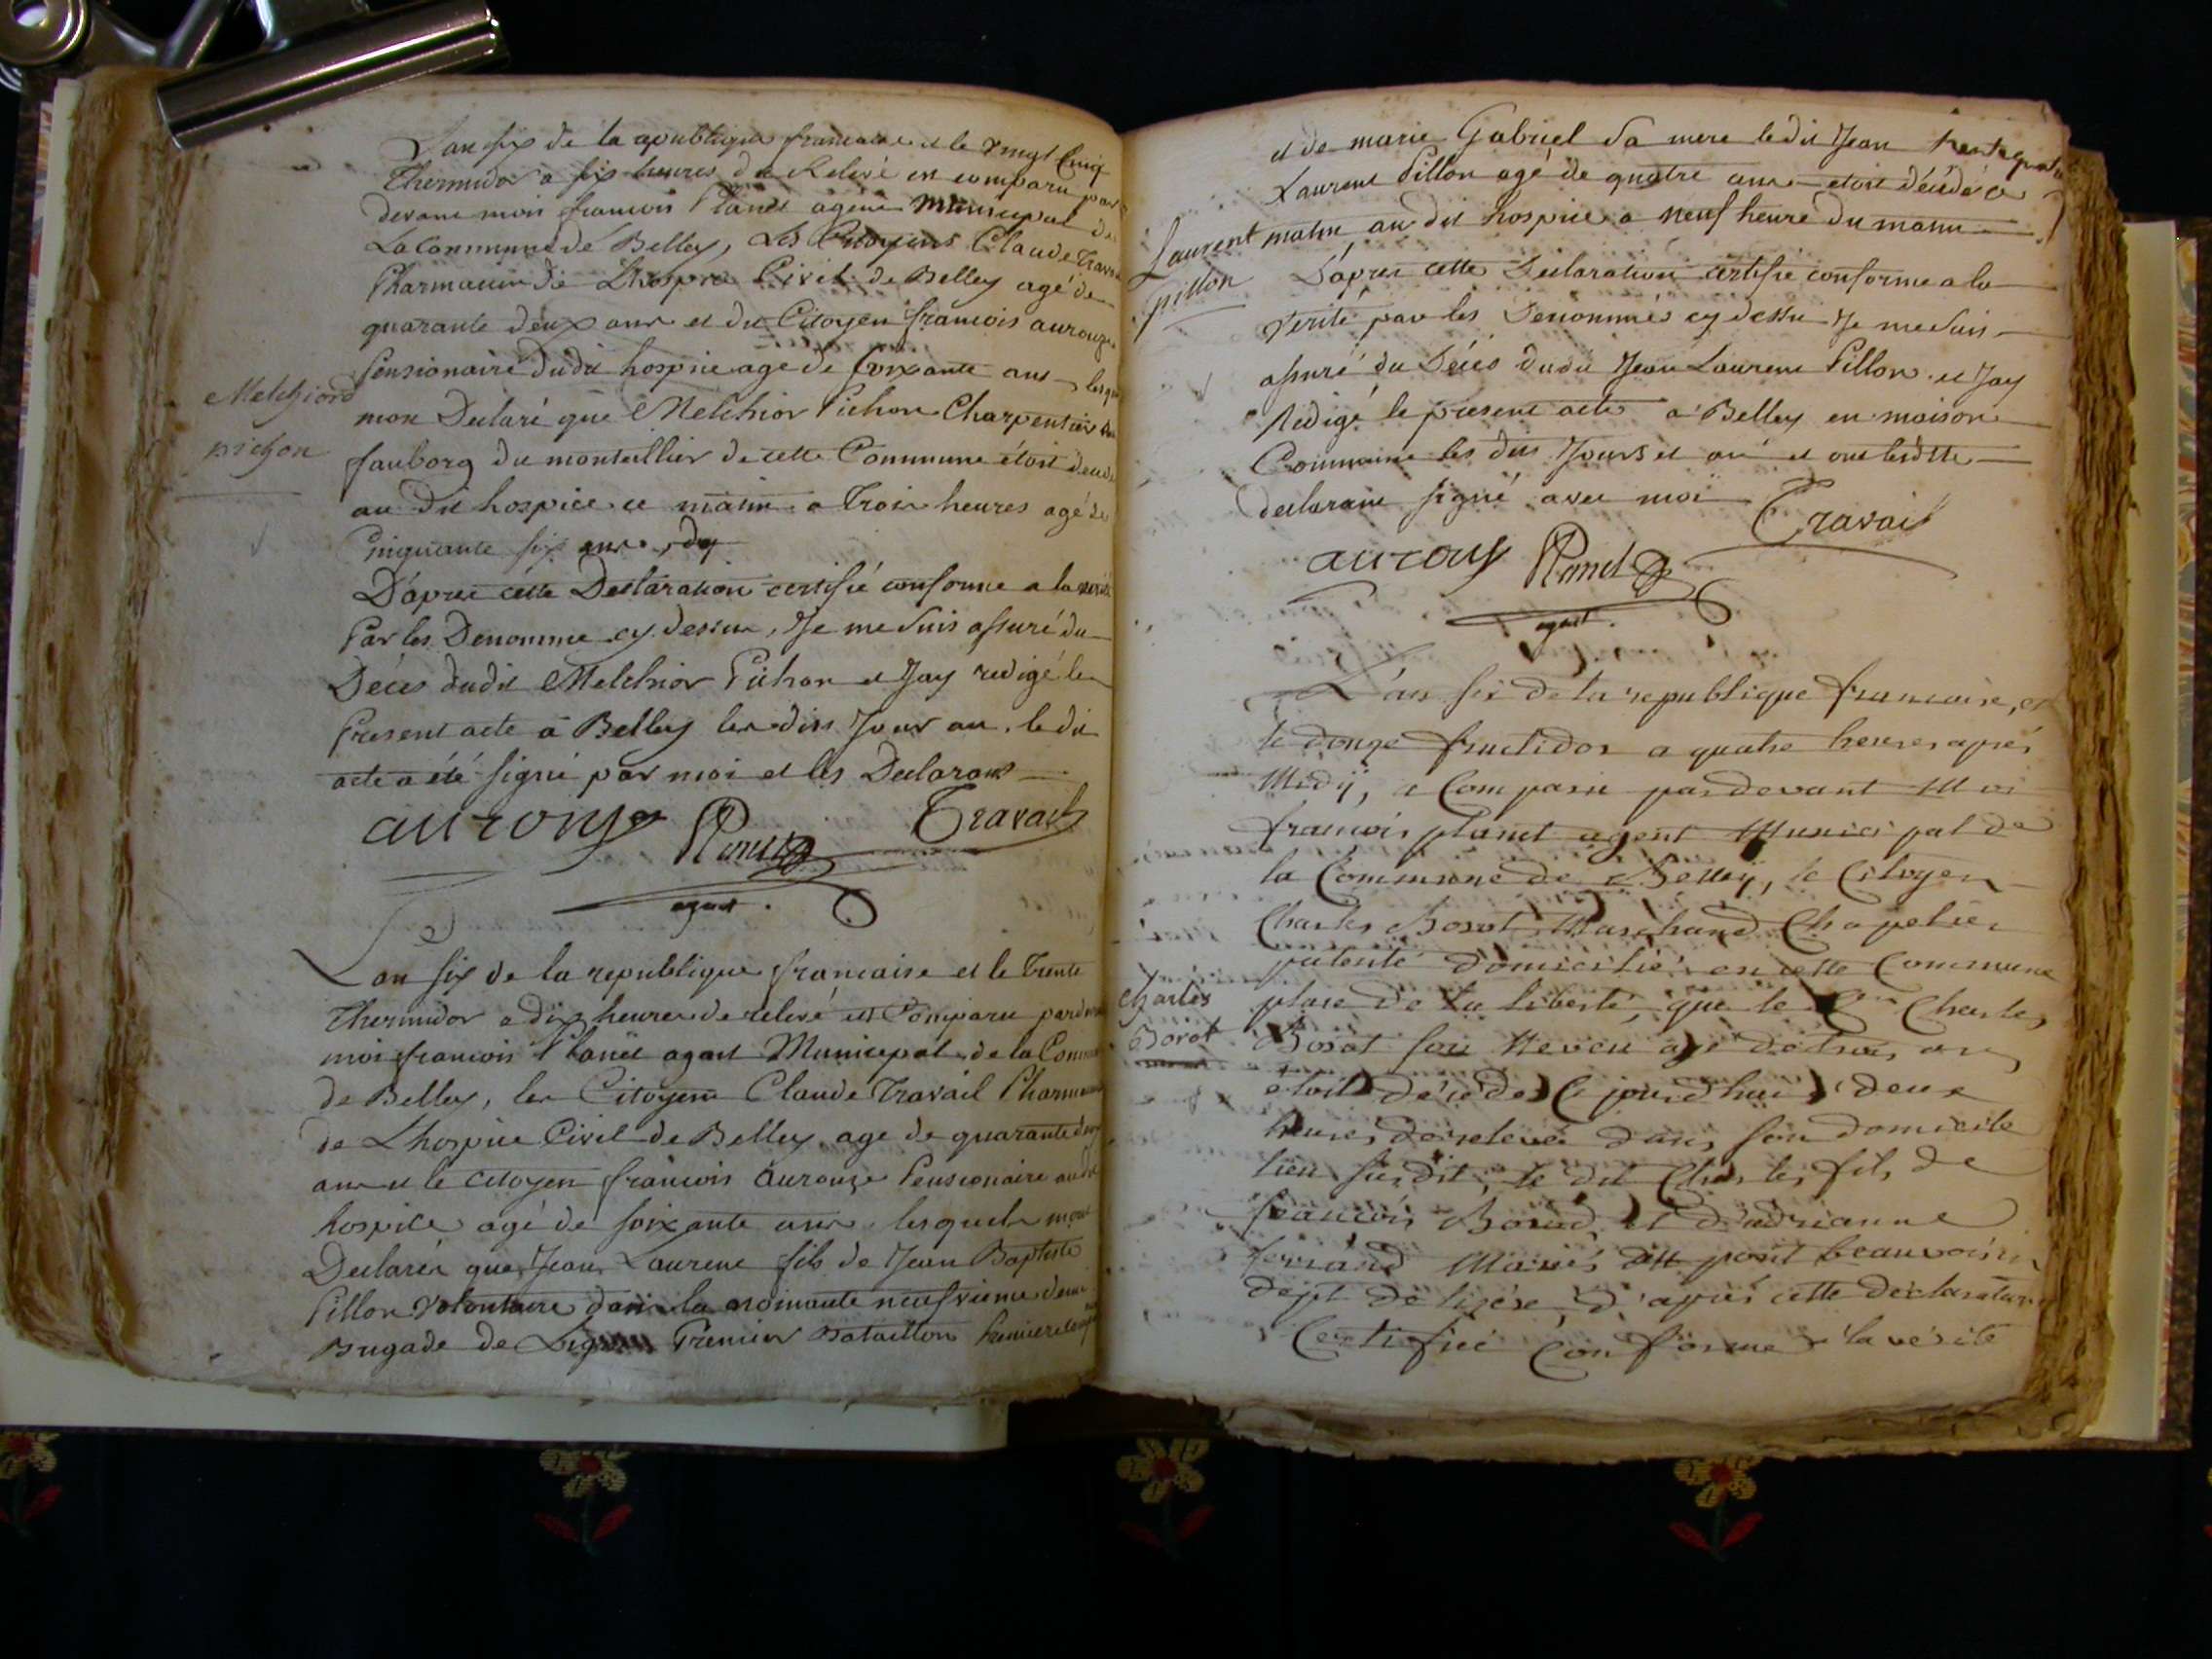 L'an six de la republique francaise et le vingt Cinq
Thermidor a six heures de Relevé est comparu par
devant moi francois Planet agent Municipal de
La Commune de Belley, Les Citoyens Claude Travail
Pharmacien de Lhospice Civil de Belley agé de
quarante deux ans et du Citoyen francois aurouze
Pensionaire dudit hospice age de Soixante ans lesquels
Melchiord
pichon
mon Declaré que Melchior Pichon Charpentier du
fauborg du montallier de cette Commune étoit
au Dit hospice ce matin a Trois heures agé de
Cinquante six ans
D'apres cette Declaration certifié conforme a la verité
Par les Denommé cy dessu, Je me suis assuré du
Décès dudit Melchior Pichon et Jay redigé le
Present acte a Belley les dits Jour an. le dit
acte a été signé par moi et les Declarans
aurouze Planet Travail
agent.
Lan six de la republique francaise et le Trente
Thermidor a dix heures de relevé est Comparu pardevant
moi francois Planet agant Municipal de la Commune
de Belley, les Citoyens Claude Travail Pharmacien
de Lhospice Civil de Belley age de quarante deux
ans et le citoyen francois aurouze Pensionaire audit
hospice agé de soixante ans lesquels mont
Declarés que Jean Laurent fils de Jean Baptiste
Pillon Volontaire dans la noinante neufvieme demi
Brigade de Ligne Premier Bataillon Premiere
et de marie Gabriel sa mere ledit Jean
Laurent Pillon agé de quatre ans etoit décédé ce
Laurent
pillon
matin au dit hospice a neuf heure du matin
D'apres cette Declaration certifié conforme a la
Verité par les Denommés cy dessu Je me suis
assuré du Décès dudit Jean Laurent Pillon et Jay
Redigé le present acte a Belley en maison
Commune les dits Jours et an et ont lesdits
declarans signé avec moi Travail
aurouze Planet
agent.
L'an six de la republique francaise, et
le douze fructidor a quatre heures aprés
Midÿ, a Comparu pardevant Moi
francois planet agent Municipal de
la Commune de Belleÿ, le Citoyen
Charles Borot Marchand Chapelier
patenté domicilié en cette Commune
Charles
Borot
place de la liberté, que le Cen Charles
Borot son Neveu agé de trois ans
etoit décédé Ce jourd'hui deux
heures de relevée dans son domicile
lieu susdit, le dit Charles fils de
francois Borod et d'adrianne
ferrand Mariés au pont beauvoisin
dept de lizére, D'après cette déclaration
Certifiée Conforme a la vérité